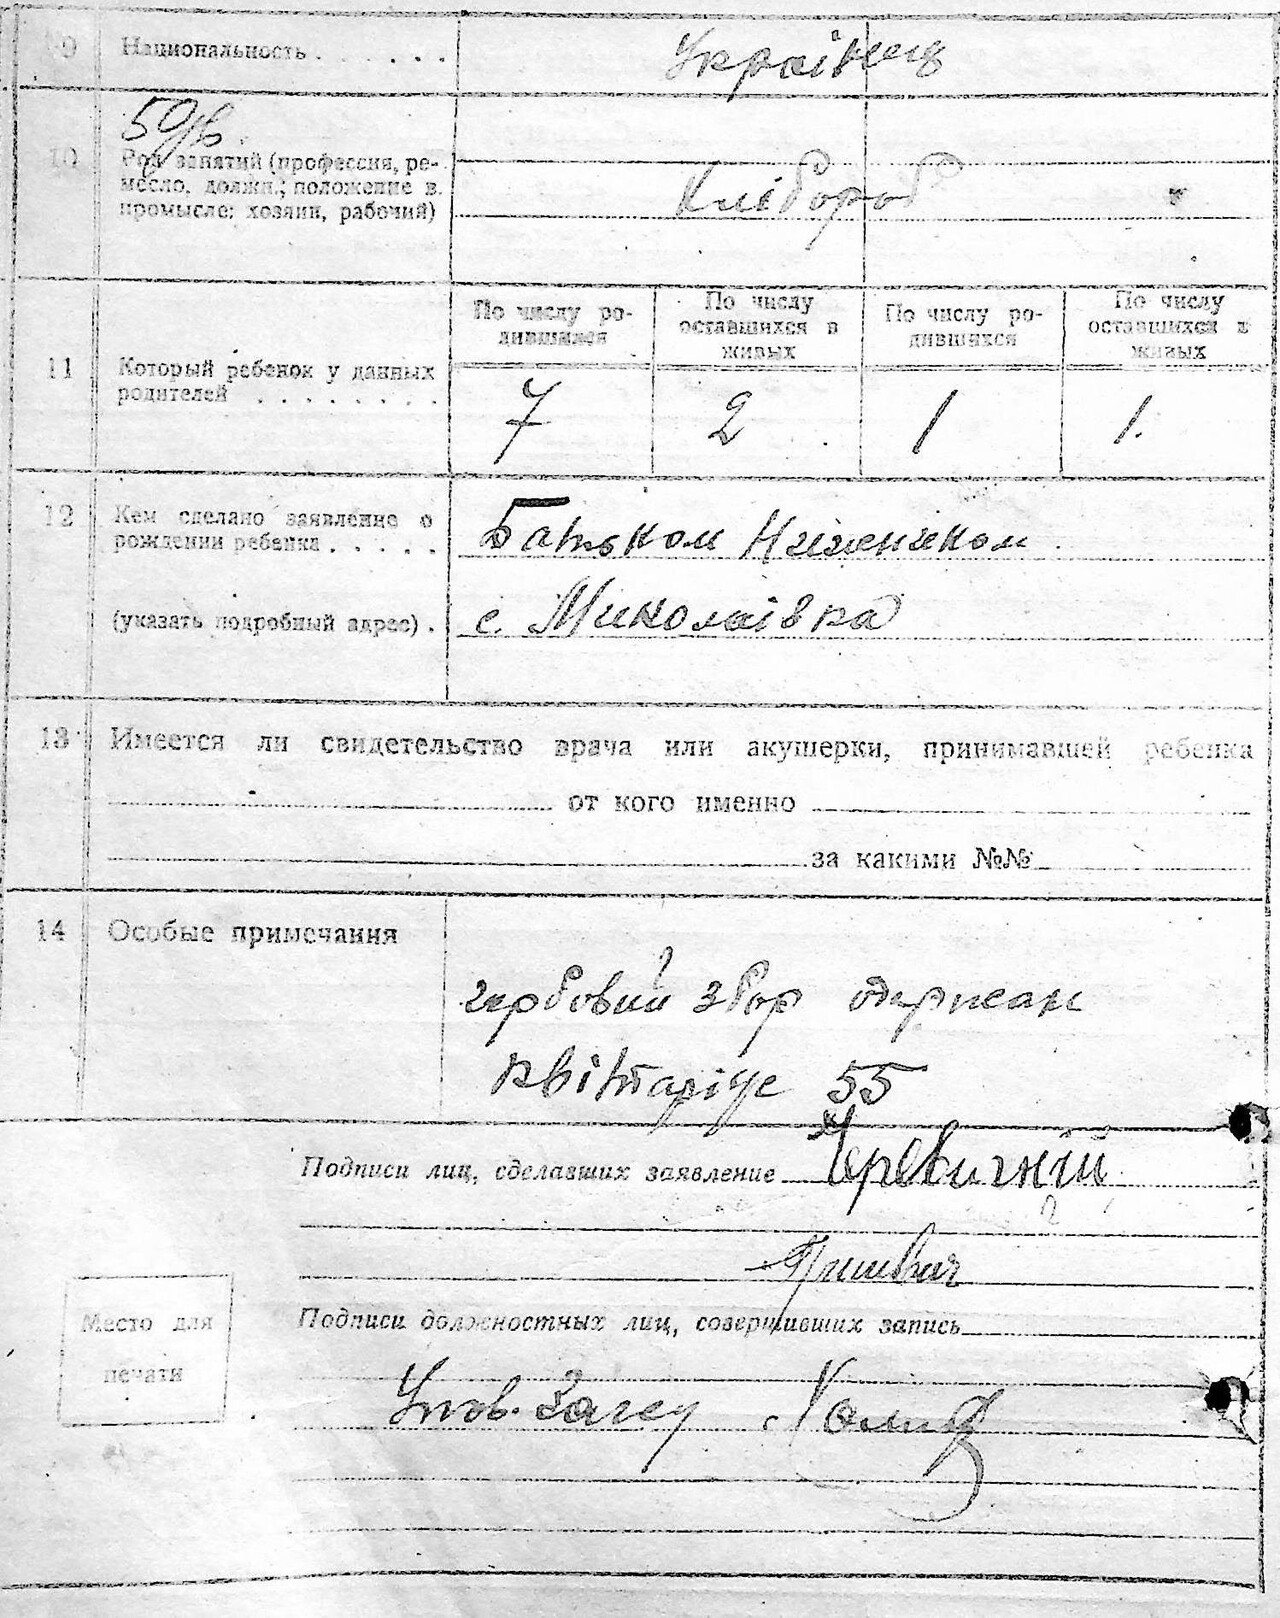 9 Национальность . . . . . . Українец
59/в
10 Род занятий (профессия, ре-
месло, должн.; положение в
промысле: хозяин, рабочий)
Хлібороб "
11 Который ребенок у данных
родителей . . . . . . . .
По числу ро-
дившихся
По числу
оставшихся в
живых
По числу ро-
дившихся
По числу
оставшихся в
живых
7 2 1 1.
12 Кем сделано заявление о
рождении ребенка . . . . .
Батьком
(указать подробный адрес) . с. Миколаівка
13 Имеется ли свидетельство врача или акушерки, принимавшей ребенка
от кого именно
за какими №№
14 Особые примечания
гербовий збор одержан
квітанціує 55
Подписи лиц, сделавших заявление Черевичний
Подписи должностных лиц, совершивших запись
Место для
печати
Упов. Загсу